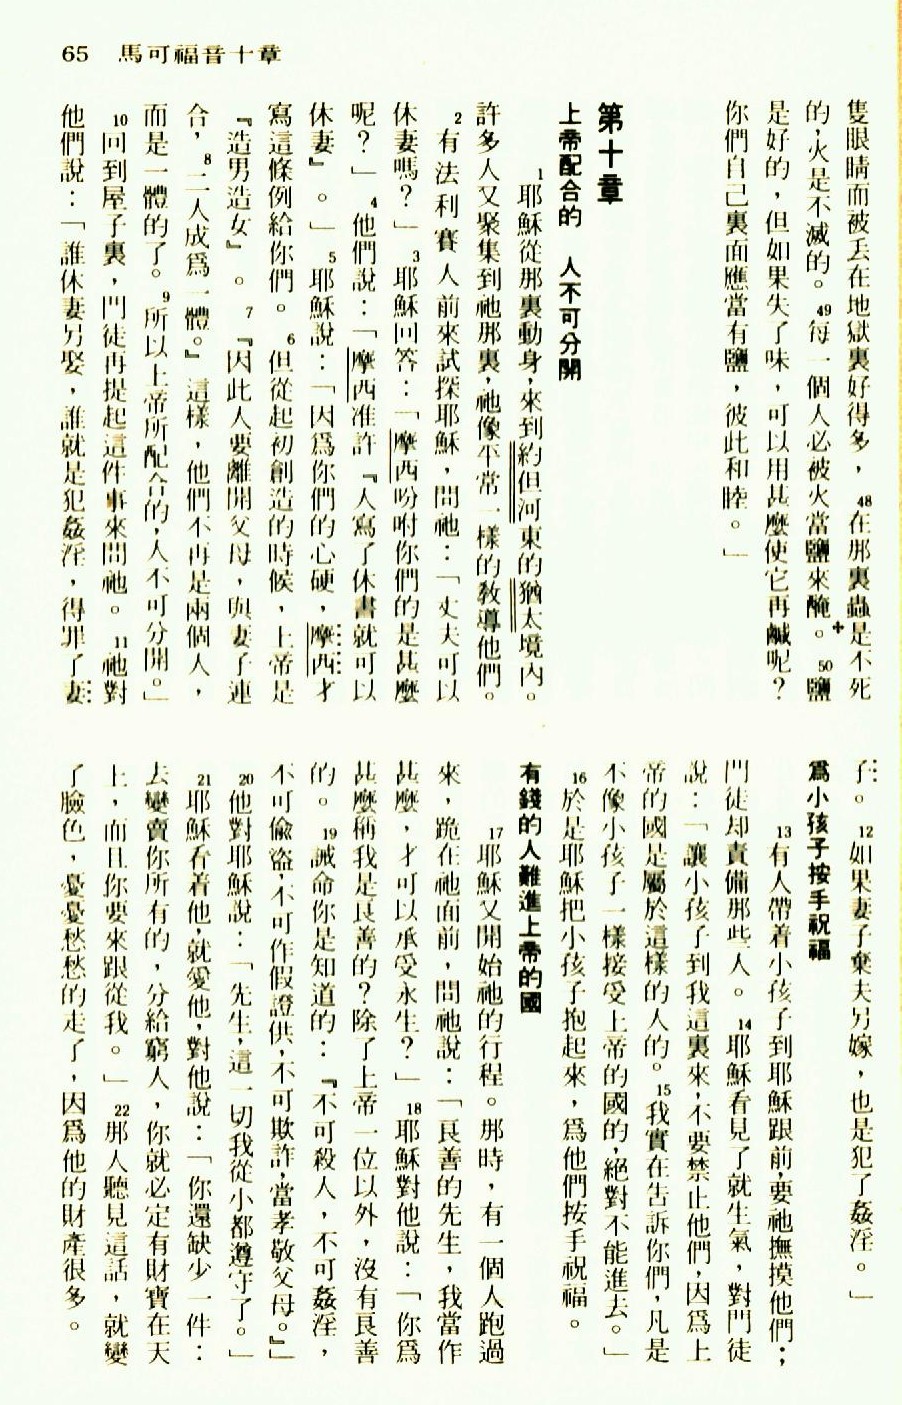 65 馬可福音十章
隻眼睛而被丢在地獄裏好得多，48在那裏蟲是不死
的，火是不滅的。49每一個人必被火當鹽來醃。50鹽
是好的，但如果失了味，可以用甚麼使它再鹹呢？
你們自己裏面應當有鹽，彼此和睦。」
第十章
上帝配合的 人不可分開
1耶穌從那裏動身，來到約但河東的猶太境內。
許多人又聚集到祂那裏，祂像平常一樣的教導他們。
2有法利賽人前來試探耶穌，問祂：「丈夫可以
休妻嗎？」3耶穌回答：「摩西吩咐你們的是甚麼
呢？」4他們說：「摩西准許『人寫了休書就可以
休妻』。」5耶穌說：「因爲你們的心硬，摩西才
寫這條例給你們。6但從起初創造的時候，上帝是
『造男造女』。7『因此人要離開父母，與妻子連
合，8二人成爲一體。』這樣，他們不再是兩個人，
而是一體的了。9所以上帝所配合的，人不可分開。」
10回到屋子裏，門徒再提起這件事來問祂。11祂對
他們說：「誰休妻另娶，誰就是犯姦淫，得罪了妻
子。12如果妻子棄夫另嫁，也是犯了姦淫。」
爲小孩子按手祝福
13有人帶着小孩子到耶穌跟前，要祂撫摸他們；
門徒却責備那些人。14耶穌看見了就生氣，對門徒
說：「讓小孩子到我這裏來，不要禁止他們，因爲上
帝的國是屬於這樣的人的。15我實在告訴你們，凡是
不像小孩子一樣接受上帝的國的，絕對不能進去。」
16於是耶穌把小孩子抱起來，爲他們按手祝福。
有錢的人難進上帝的國
17耶穌又開始祂的行程。那時，有一個人跑過
來，跪在祂面前，問祂說：「良善的先生，我當作
甚麼，才可以承受永生？」18耶穌對他說：「你爲
甚麼稱我是良善的？除了上帝一位以外，沒有良善
的。19誡命你是知道的：『不可殺人，不可姦淫，
不可偷盜，不可作假證供，不可欺詐，當孝敬父母。』」
20他對耶穌說：「先生，這一切我從小都遵守了。」
21耶穌看着他，就愛他，對他說：「你還缺少一件：
去變賣你所有的，分給窮人，你就必定有財寶在天
上，而且你要來跟從我。」22那人聽見這話，就變
了臉色，憂憂愁愁的走了，因爲他的財產很多。